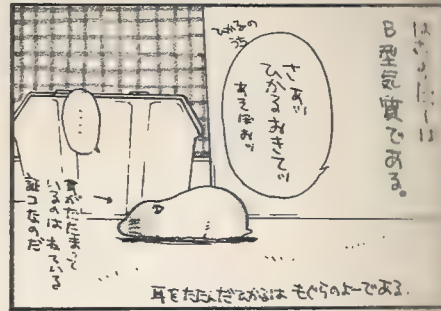 B型気質である。
さあッ
ひかるおきてッ
あそぼおッ
ひかるの
うち
……
耳がたたまって
いるのはねている
証コなのだ
耳をたたんだひかるはもぐらのよーである.